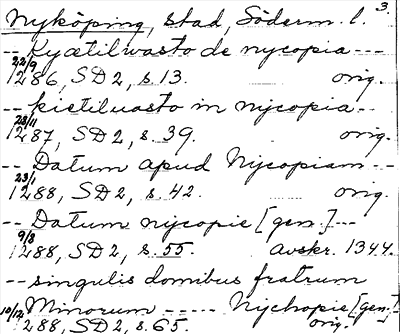 Nyköping, stad, Söderm. l. 3
-- Kyætilwasto de nycopia ---
22/9 1286, SD2, s. 13. orig.
-- kietilwasto in nycopia --
23/11 1287, SD2, s. 39. orig.
-- Datum apud Nycopiam ---
23/1 1288, SD2, s. 42. orig.
-- Datum nycopie [gen.] ---
9/3 1288, SD2, s. 55. avskr. 1344.
-- singulis domibus fratrum
Minorum ----- Nychopie [gen.]
10/12 1288, SD2, s. 65. orig.